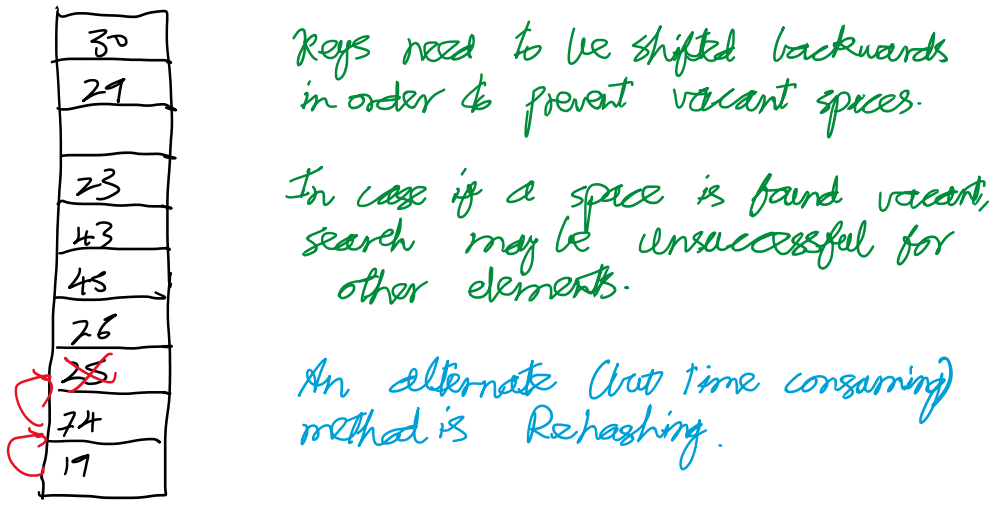 30
29
23
43
45
26
25
74
19
Keys need to be shifted backwards
in order to prevent vacant spaces.
In case if a space is found vacant,
search may be unsuccessful for
other elements.
An alternate (but time consuming)
method is Rehashing.